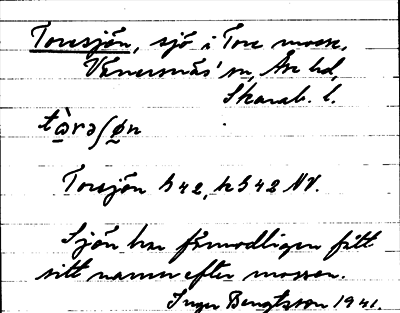 Toresjön, sjö i Tore mosse,
Vänersnäs' sn, Åse hd,
Skarab. l.
tὼrəʃøn
Toresjön h 42, kh 42 NV.
Sjön har förmodligen fått
sitt namn efter mossen.
Inger Bengtsson 1941.